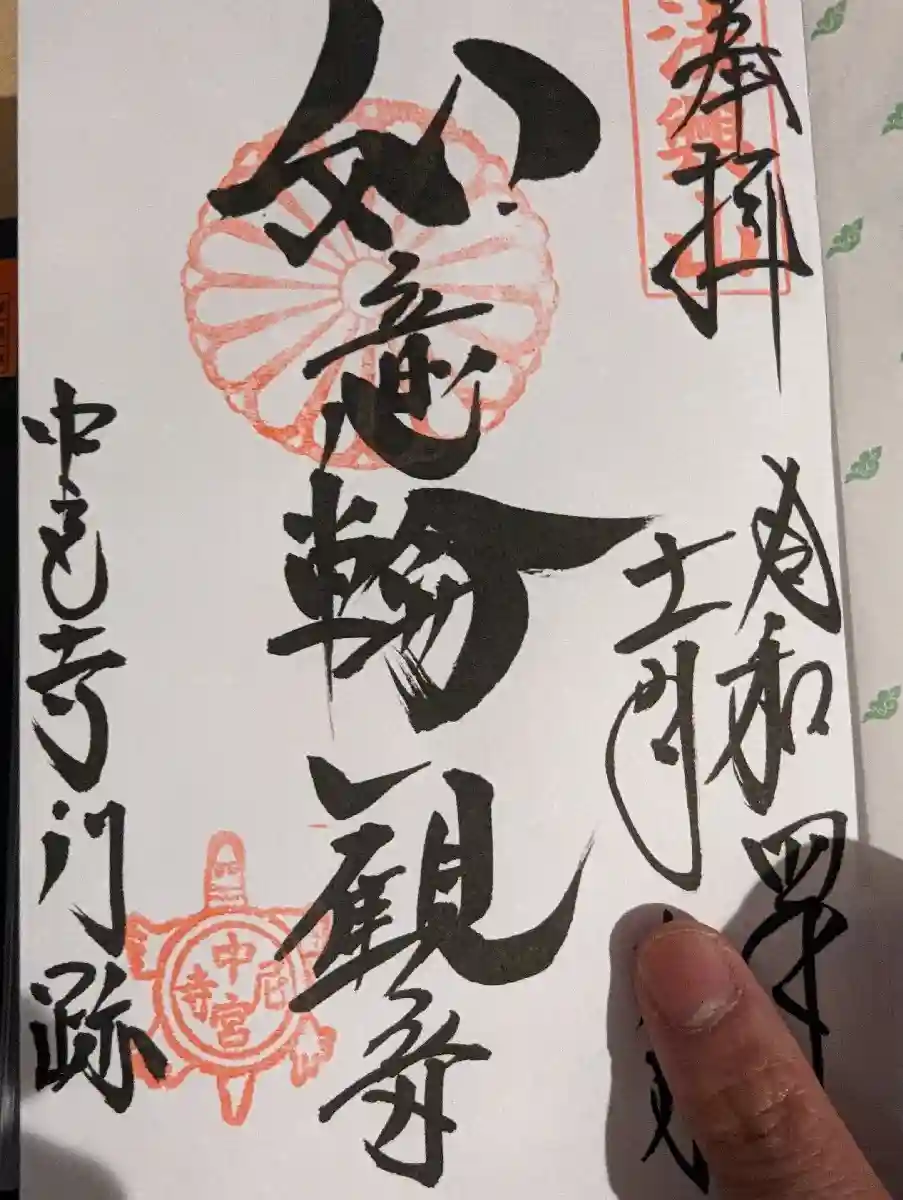 奉拝
法興山
令和四年
十一月
如意輪観音
中宮寺門跡
中宮尼寺